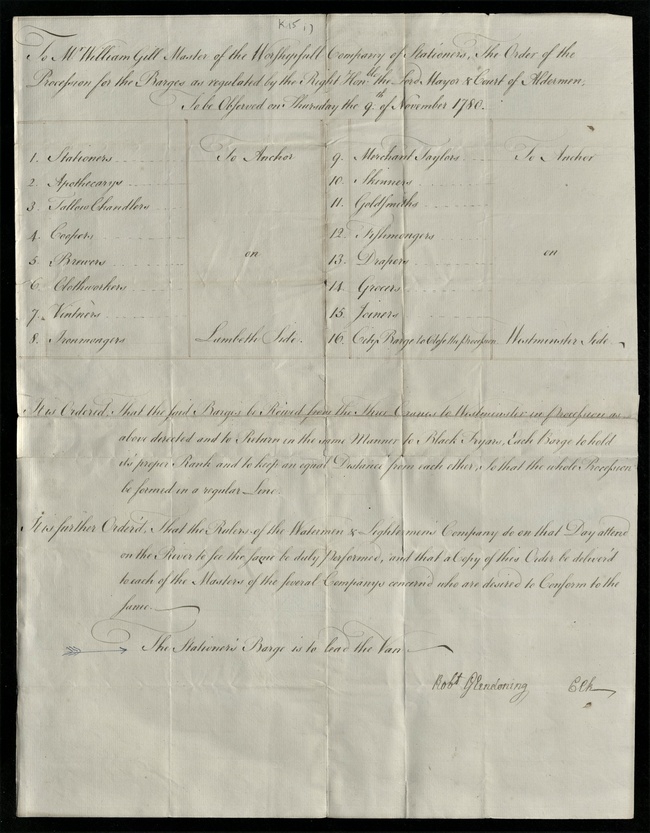 K15 1)
To Mr. William Gill Master of the Worshipfull Company of Stationers, The Order of the
Procession for the Barges as regulated by the Right Honble. the Lord Mayor & Court of Aldermen,
To be Observed on Thursday the 9th. of November 1780.
1. Stationers
2. Apothecarys
3. Tallow Chandlers
4. Coopers
5. Brewers
6. Clothworkers
7. Vintners
8. Ironmongers
To Anchor
on
Lambeth Side.
9. Merchant Taylors
10. Skinners
11. Goldsmiths
12. Fishmongers
13. Drapers
14. Grocers
15. Joiners
16. City Barge to Close the Procession
To Anchor
on
Westminster Side
It is Ordered, That the said Barges be Rowed from the Three Cranes to Westminster in procession as
above directed and to Return in the same Manner to Black Fryars, Each Barge to hold
it's proper Rank and to keep an equal Distance from each other, so that the whole Procession
be formed in a regular Line.
It is further Order'd, That the Rulers of the Watermen & Lightermens Company do on that Day attend
on the River to see the same be duly Performed, and that a Copy of this Order be deliver'd
to each of the Masters of the several Companys concern'd who are desired to Conform to the
same.
The Stationer's Barge is to lead the Van
Robt. Glendoning Clk